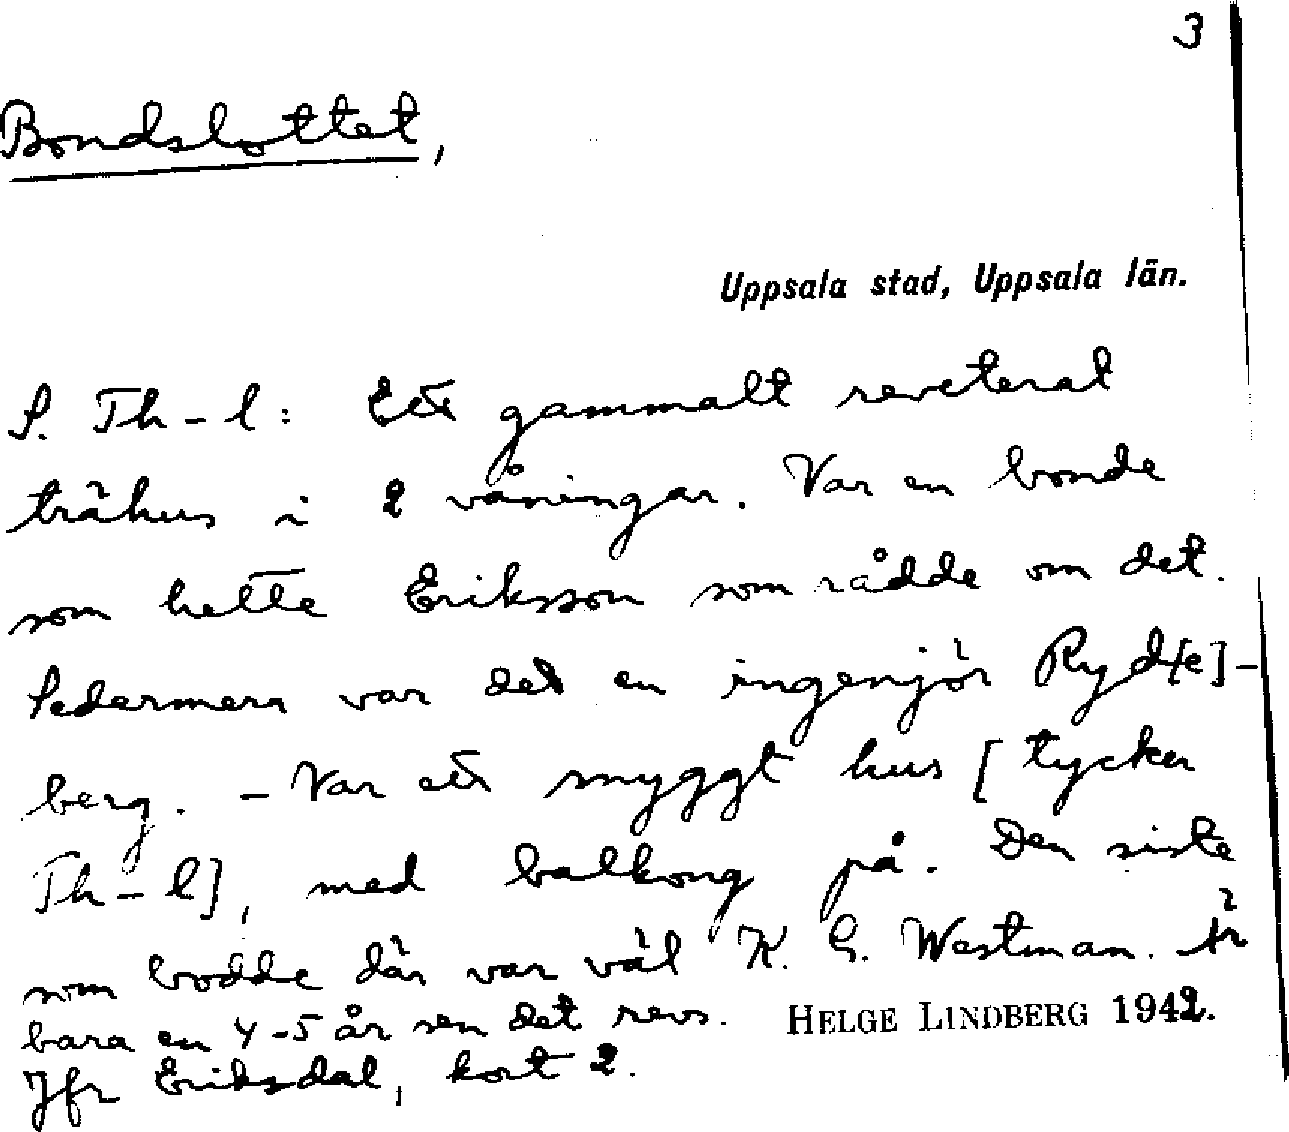 3
Bondslottet,
Uppsala stad, Uppsala län.
S. Th-l: Ett gammalt reveterat
trähus i 2 våningar. Var en bonde
som hette Eriksson som rådde om det.
Sedermera var det en ingenjör Ryd[e]-
berg. – Var ett snyggt hus [tycker
Th-l], med balkong på. Den siste
som bodde där var väl K. G. Westman. Är
bara en 4-5 år sen det revs. HELGE LINDBERG 1942.
Jfr Eriksdal, kort 2.